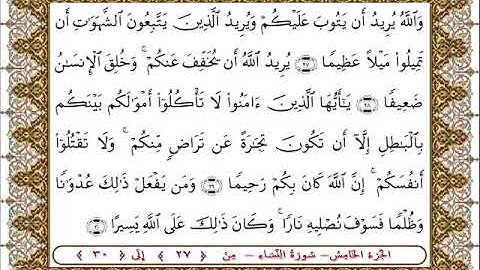 وَٱللَّهُ يُرِيدُ أَن يَتُوبَ عَلَيْكُمْ وَيُرِيدُ ٱلَّذِينَ يَتَّبِعُونَ ٱلشَّهَوَٰتِ أَن
تَمِيلُوا۟ مَيْلًا عَظِيمًا ﴿٢٧﴾ يُرِيدُ ٱللَّهُ أَن يُخَفِّفَ عَنكُمْ ۚ وَخُلِقَ ٱلْإِنسَٰنُ
ضَعِيفًا ﴿٢٨﴾ يَٰٓأَيُّهَا ٱلَّذِينَ ءَامَنُوا۟ لَا تَأْكُلُوٓا۟ أَمْوَٰلَكُم بَيْنَكُم
بِٱلْبَٰطِلِ إِلَّآ أَن تَكُونَ تِجَٰرَةً عَن تَرَاضٍ مِّنكُمْ ۚ وَلَا تَقْتُلُوٓا۟
أَنفُسَكُمْ ۚ إِنَّ ٱللَّهَ كَانَ بِكُمْ رَحِيمًا ﴿٢٩﴾ وَمَن يَفْعَلْ ذَٰلِكَ عُدْوَٰنًا
وَظُلْمًا فَسَوْفَ نُصْلِيهِ نَارًا ۚ وَكَانَ ذَٰلِكَ عَلَى ٱللَّهِ يَسِيرًا ﴿٣٠﴾
الجزء الخامس – سورة النساء – من ﴿ ٢٧ ﴾ إلى ﴿ ٣٠ ﴾